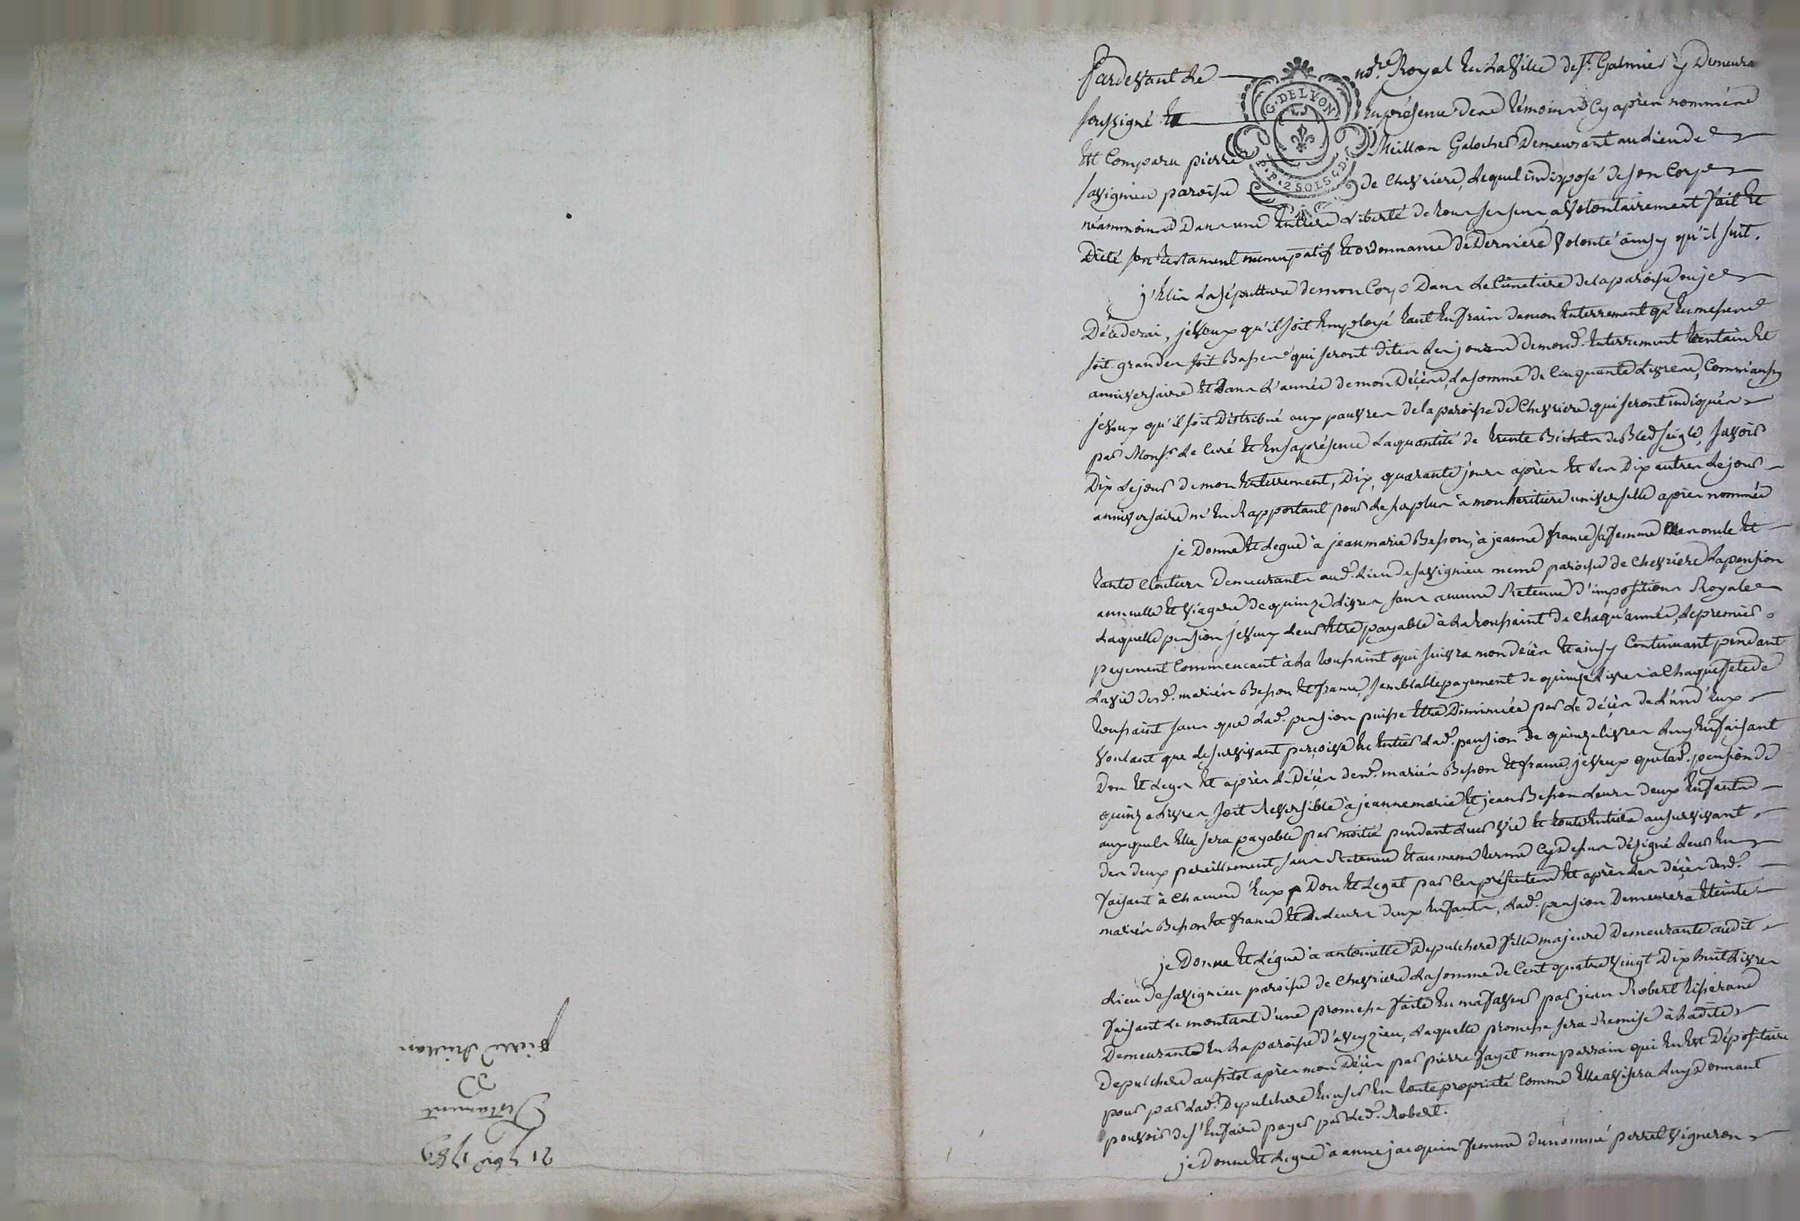 Pardevant le no.re Royal en la ville de s.t Galmier y Demeura
soussigné et en présence des témoins cy après nommés
est comparu pierre Meillan Galocher Demeurant au lieu de
G. DE LYON
P. P. 2 SOLS 4 D.
savignieu paroisse de chevrieres, lequel indisposé de son corps
néammoins dans une entiere liberté de tous ses sens a volontairement fait et
Dicté son testament nuncupatif et ordonnance de derniere volonté ainsy qu'il suit.
j'élis la sépulture de mon corps dans le cimetiere de la paroisse ou je
Décéderai, je veux qu'il soit employé tant en frais de mon enterrement qu'en messes
soit grandes soit Basses qui seront dites les jours de mond. enterrement trentain et
anniversaire et dans l'année de mon Décès, la somme de cinquante livres, comm'aussy
je veux qu'il soit distribué aux pauvres de la paroisse de chevrieres qui seront indiqués
par Mons.r le curé et en sa présence la quantité de trente Bichets de Bled seigle, savoir
Dix le jour de mon enterrement, Dix, quarante jours après et les Dix autres le jour
anniversaire m'en Rapportant pour le surplus à mon heritiere universelle après nommée
je Donne et legue à jean marie Besson, à jeanne france sa femme mes oncle et
tante clotiers Demeurants aud. lieu de savignieu meme paroisse de chevrieres la pension
annuelle et viagere de quinze livres sans aucune Retenue d'impositions Royales
laquelle pension je veux leur etre payable à la toussaint de chaqu'année, le premier
payement commencant à la toussaint qui suivra mon décès et ainsy continuant pendant
la vie desd. mariés Besson et france, semblable payement de quinze livres à chaque fete de
toussaint sans que lad. pension puisse etre Diminuée par le décès de l'un d'eux
voulant que le survivant perçoive en entier lad. pension de quinze livres leur en faisant
Don et legs et après le Décès desd. mariés Besson et france, je veux que lad. pension de
quinze livres soit Reversible à jeanne marie et jean Besson leurs deux enfants
auxquels elle sera payable par moitié pendant leur vie et toute entiere au survivant
des deux pareillement sans Retenue et au meme terme cy dessus désigné leur en
faisant à chacun d'eux Don et legat par les présentes et après les décès desd.
mariés Besson et france et de leurs deux enfants, lad. pension Demeurera éteinte
je Donne et légue à antoinette Depulchere fille majeure Demeurante audit
lieu de savignieu paroisse de chevrieres la somme de cent quatre vingt dix huit livres
faisant le montant d'une promesse faite en ma faveur par jean Robert tisserand
Demeurant en la paroisse d'aveyzieu, laquelle promesse sera Remise à ladite
Depulchere aussitot après mon Décès par pierre fayet mon parrain qui en est Dépositaire
pour par lad. Depulchere en user en toute propriété comme elle avisera luy Donnant
pouvoir de s'en faire payer par led. Robert.
je Donne et legue à anne jacquin femme du nommé perret vigneron
21 7bre 1789
Testament
De
pierre Meillan